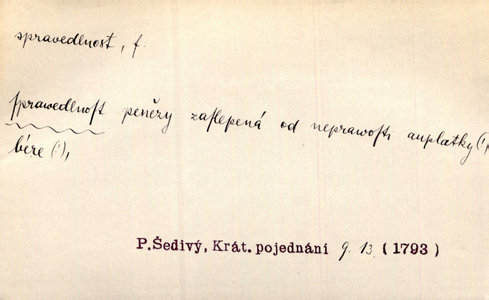 spravedlnost, f.
ſprawedlnoſt penězy zaſlepená od neprawoſti auplatky (!)
béře (!),
P.Šedivý, Krát. pojednání 9. 13. (1793)